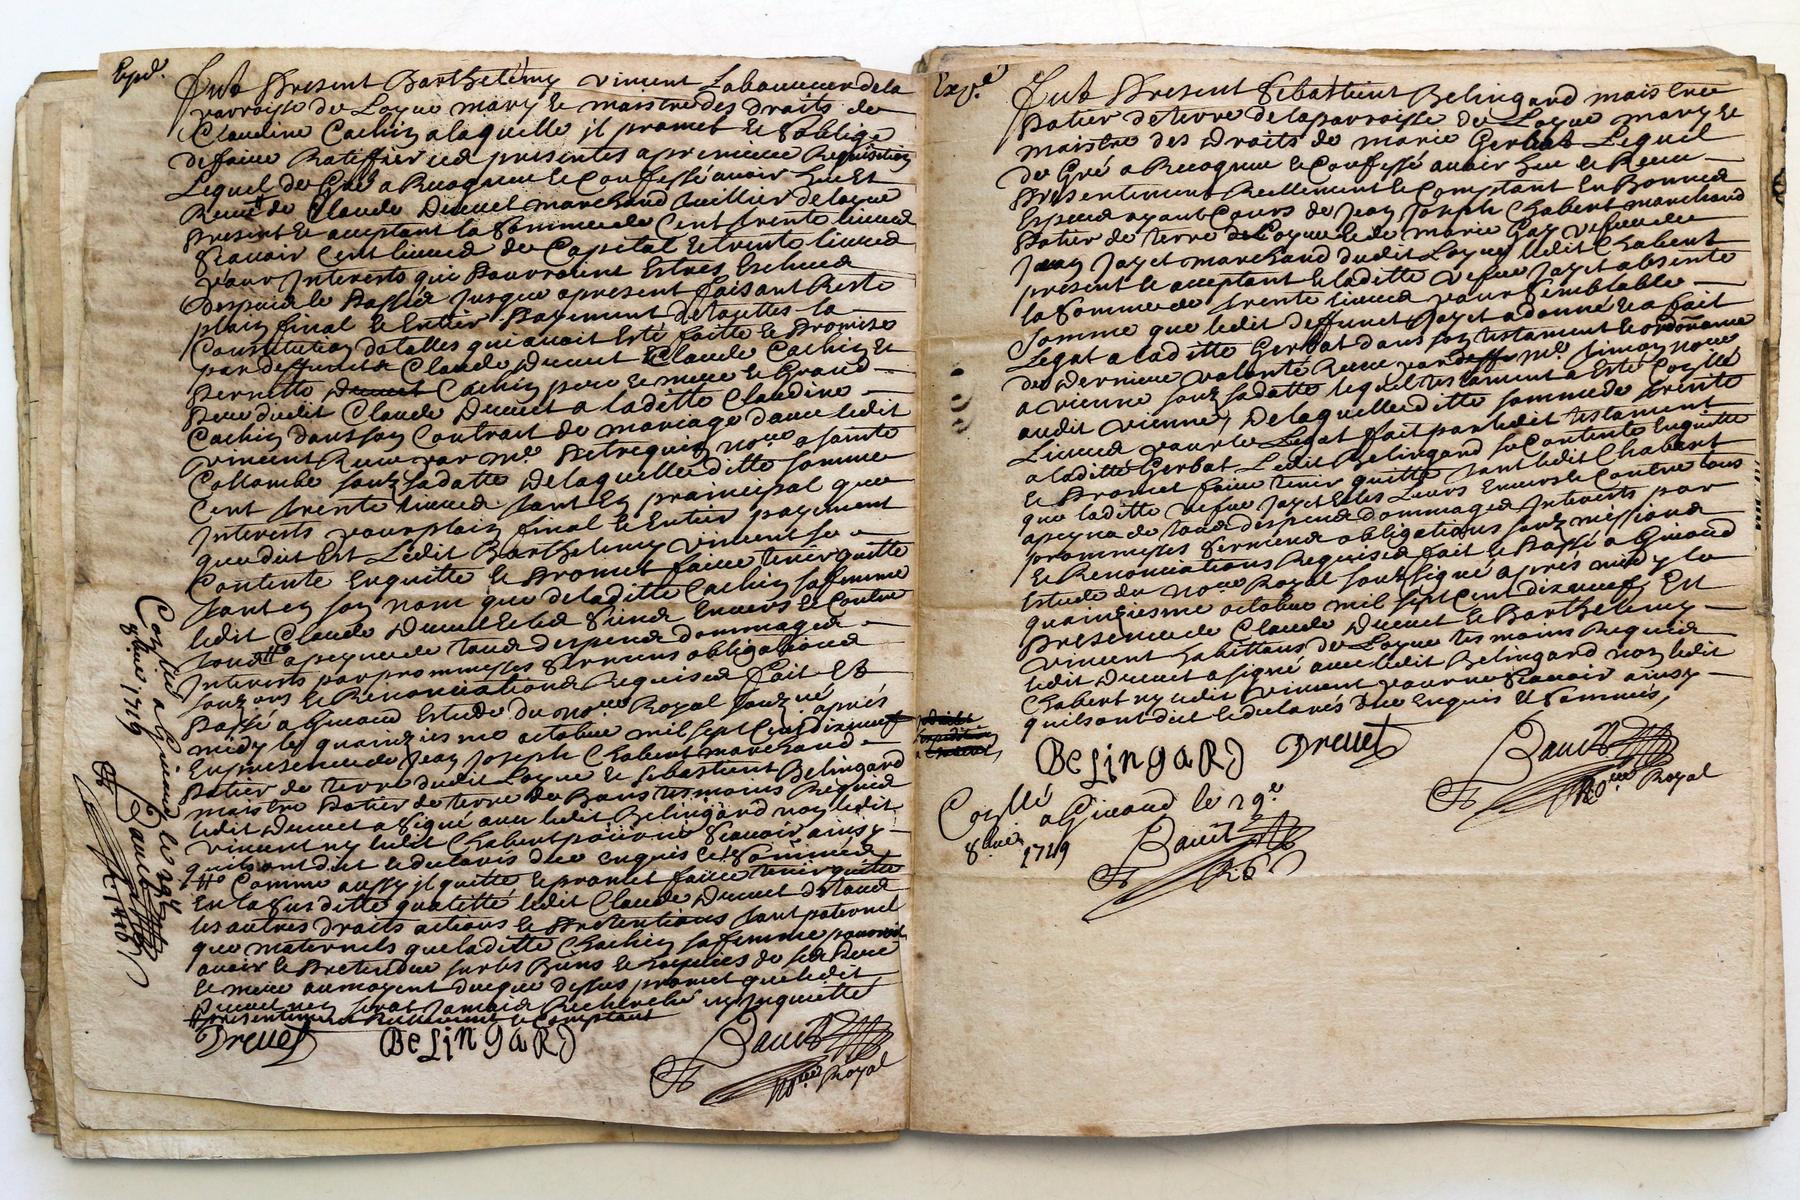 Expd.
Fut Present Barthelemy vincent Laboureur dela
parroisse de Loyue mary et maistre des droits de
Claudine Cachin a laquelle jl promet et soblige
de faire Ratiffier ces presentes a premiere Requisition
Lequel de Gré a Recognu et Confessé auoir heu et
Receu de Claude Dreuet marchand tuillier de loyue
present et acceptant la somme de Cent trente liures
scauoir Cent liures de Capital et trente liures
pour Interests qui pourroient Estres Escheus
despuis le passés jusque apresent faisant Reste
plain final et Entier payement de la
Constitution dotalles qui auoit Esté faitte et Promise
par deffunts Claude Dreuet Claude Cachin et
Pernette Dreuet Cachin pere et mere et Grand
Pere dudit Claude Dreuet a laditte Claudine
Cachin dans son Contrat de mariage auec ledit
vincent Receu par me. no.re a sainte
Collombe souz sa datte De laquelle ditte somme
Cent trente liures tant En prainicipal que
Interests pour plain final et Entier payement
que dit Est Ledit Barthelemy vincent se
Contente Enquitte et Promet faire tenir quitte
tant en son nom que de laditte Cachin sa femme
ledit Claude Dreuet et les siens Enuers et Contre
tous # a peyne de tous despens dommages
Interests par prommesses sermens obligations
souz ons et Renonciations Requises Fait et
Passé a Giuord Estude du no.re Royal souz.né apres
midy le quainziesme octobre mil sept Cent dixneuf
En presence de Jean Joseph Chabert marchand
Potier de terre dudit Loyue et sebastient Belingard
maistre Potier de terre de tesmoins Requis
ledit Dreuet a signé auec ledit Belingard non ledit
vincent ny ledit Chabert pour ne scauoir ainsy
quils ont dit et declarés de ce enquis et sommés
# Comme aussy il quitte et promet faire tenir quitte
En la susditte qualitté ledit Claude Dreuet de tous
les autres droits actions et Pretentions tant paternel
que maternels que laditte Chachin sa femme pourroit
auoir et Pretendre sur les Biens et hoyries de ses Pere
et mere au moyent dequoy dessus promet que ledit
Dreuet nen serat Jamais Recherché ny Inquietté
# presentement Reellement et Comptant
Dreuet BeLingaRD
no.re Royal
Conllé a Giuord le 29e
8bre 1719
Expé.
Fut Present Sebastient Belingard maistre
Potier de terre de la parroisse de Loyue mary et
maistre des Droits de marie Gerbat Lequel
de Gré a Recognu et Confessé auoir heu et Receu
Presentement Reellement et Comptant En Bonnes
Especes ayant Cours de Jean Joseph Chabert marchand
Potier de terre de Loyue et de marie Gay vefue de
Jean Jayet marchand dudit Loyue ledit Chabert
present et acceptant et laditte vefue Jayet absente
la somme de trente liures pour semblable
somme que ledit deffunct Jayet a donné et a fait
Legat a laditte Gerbat dans son testament et ordonance
de Derniere volonté Receu par me. simon no.re
a vienne souz sa datte lequel testament a Esté Conllé
audit vienne, De laquelle ditte somme de trente
Liures pour le Legat fait par ledit testament
a laditte Gerbat Ledit Belingard se Contente Enquitte
et Promet faire tenir quitte tant ledit Chabert
que laditte vefue Jayet et les Leurs Enuers et Contre tous
a peyne de tous despens dommages Interests par
prommesses sermens obligations souz missions
et Renonciations Requises fait et Passé a Giuord
Estude du no.re Royal souz signé après midy le
quainziesme octobre mil sept Cent dixneuf En
presence de Claude Dreuet et Barthelemy
vincent habittans de Loyue tesmoins Requis
ledit Dreuet a signé auec ledit Belingard non ledit
Chabert ny ledit vincent pour ne scauoir ainsy
quils ont dit et declarés de ce Enquis et sommés,
BeLingaRD Dreuet
no.re Royal
Conllé a Giuord le 29e
8bre 1719